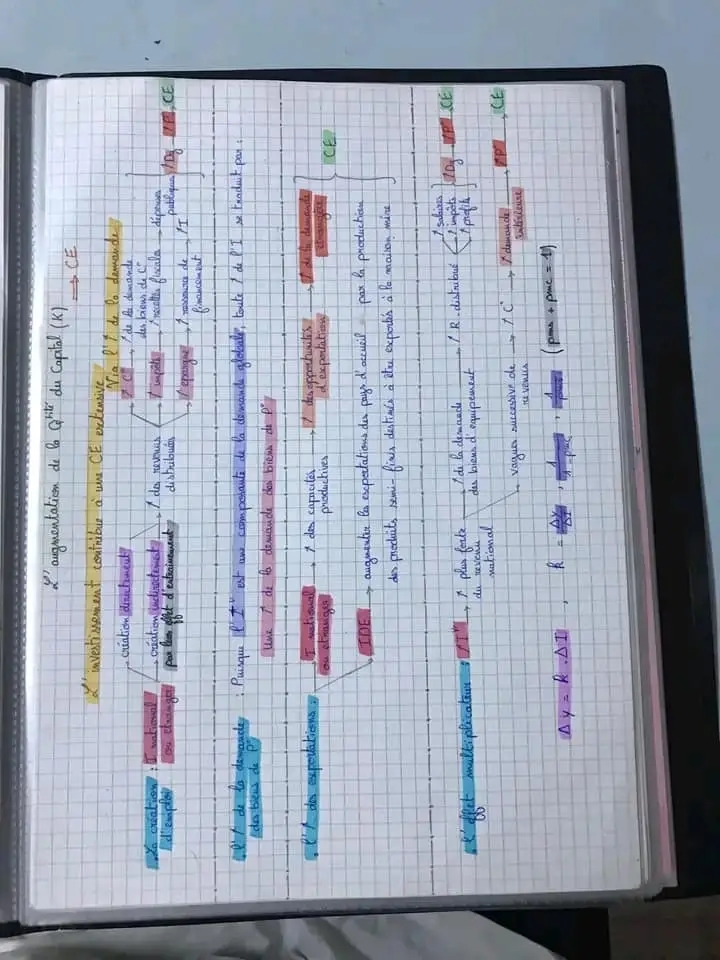 L'augmentation de la Qtité du Capital (K) → CE
L'investissement contribue à une CE extensive
Via l'↑ de la demande
La création d'emploi : I national ou étranger
création directement
création indirectement par leur effet d'entrainement
↑ des revenus distribués
↑ C° → ↑ de la demande des biens de C°
↑ impôts → ↑ recettes fiscales → dépenses publiques
↑ épargne → ↑ ressource de financement → ↑ I
↑ Dg → ↑ P° → CE
l'↑ de la demande des biens de P° : Puisque l'I° est une composante de la demande globale, toute ↑ de l'I se traduit par :
Une ↑ de la demande des biens de P°
l'↑ des exportations :
I national ou étranger → ↑ des capacités productives → ↑ des opportunités d'exportation → ↑ de la demande étrangère
IDE → augmenter les exportations des pays d'accueil par la production des produits semi-finis destinés à être exportés à la maison mère
CE
l'effet multiplicateur : ↑ I° → ↑ plus forte du revenu national
↑ de la demande des biens d'équipement → ↑ R. distribué
↑ salaires
↑ impôts
↑ profits
↑ Dg → ↑ P° → CE
vagues successive de revenus → ↑ C° → ↑ demande intérieure → ↑ P° → CE
Δy = k . ΔI , k = Δy/ΔI , 1/1-pmc , 1/pms (pms + pmc = 1)